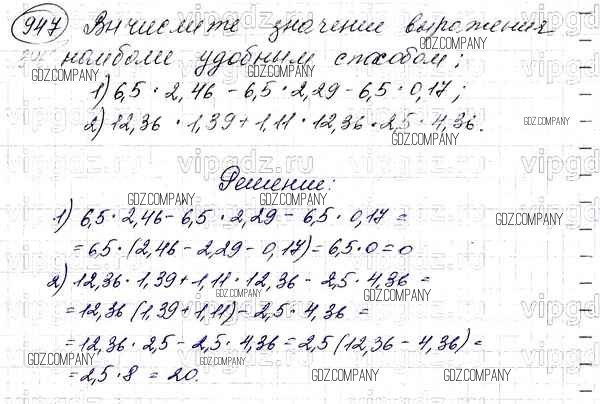 947 Вычислите значение выражения
наиболее удобным способом:
1) 6,5 · 2,46 - 6,5 · 2,29 - 6,5 · 0,17;
2) 12,36 · 1,39 + 1,11 · 12,36 · 2,5 · 4,36.
Решение:
1) 6,5 · 2,46 - 6,5 · 2,29 - 6,5 · 0,17 =
= 6,5 · (2,46 - 2,29 - 0,17) = 6,5 · 0 = 0
2) 12,36 · 1,39 + 1,11 · 12,36 - 2,5 · 4,36 =
= 12,36 (1,39 + 1,11) - 2,5 · 4,36 =
= 12,36 · 2,5 - 2,5 · 4,36 = 2,5 (12,36 - 4,36) =
= 2,5 · 8 = 20.